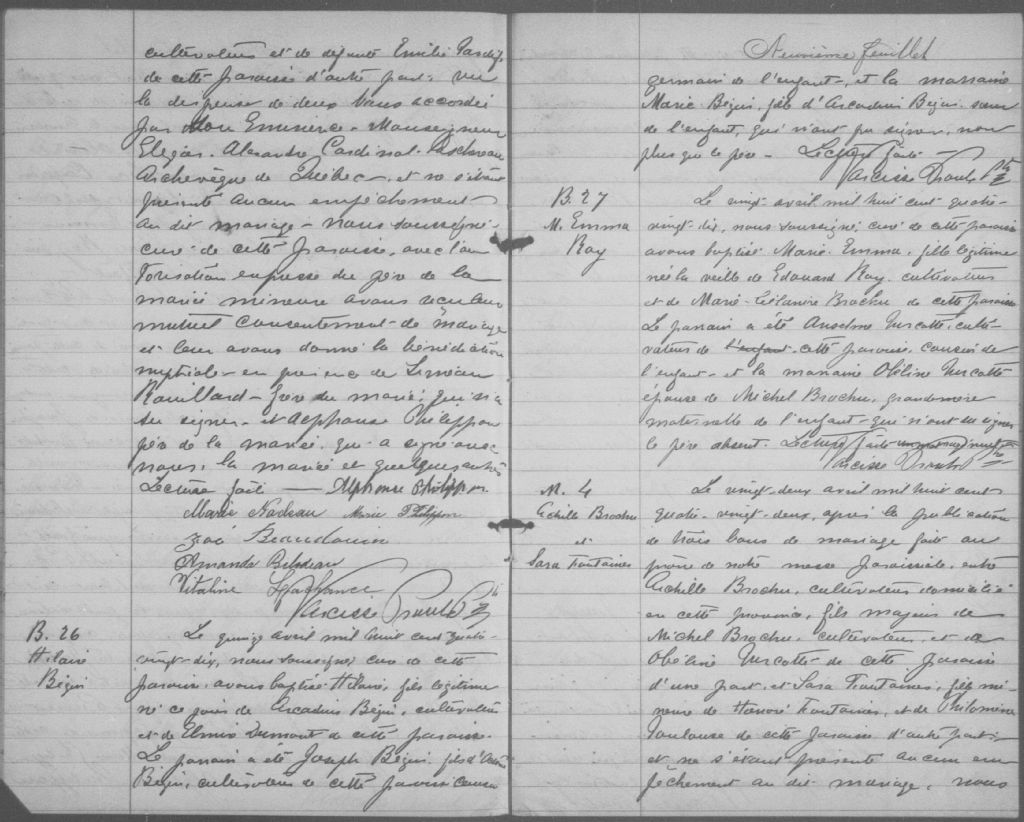 cultivateur et de défunte Emilie
de cette paroisse d'autre part. vu
la dispense de deux bans accordée
par Son Eminence Monseigneur
Elzéar Alexandre Cardinal Taschereau
Archevêque de Québec, et ne s'étant
présenté aucun empêchement
au dit mariage - nous soussigné
curé de cette paroisse, avec l'au
torisation expresse du père de la
mariée mineure avons reçu leur
mutuel consentement de mariage
et leur avons donné la bénédiction
nuptiale - en présence de
Rouillard - frère du marié, qui n'a
su signer - et Alphonse Philippon
père de la mariée qui a signé avec
nous, la mariée et quelques autres
Lecture faite — Alphonse Philippon
Marie Nadeau Marie Philippon
Zoé Beaudouin
Amanda Bilodeau
Vitaline Lachance
Narcisse Proulx Ptre
B. 26
Hilaire
Bégin
Le quinze avril mil huit cent quatre-
vingt-dix, nous soussigné curé de cette
paroisse avons baptisé Hilaire, fils légitime
né ce jour de Arcadius Bégin, cultivateur
et de Elmire Dumont de cette paroisse.
Le parrain a été Joseph Bégin fils d'
Bégin, cultivateur de cette paroisse cousin
Neuvième feuillet
germain de l'enfant, et la marraine
Marie Bégin, fille d'Arcadius Bégin sœur
de l'enfant, qui n'ont pu signer, non
plus que le père - Lecture faite —
Narcisse Proulx Ptre
B. 27
M. Emma
Roy
Le vingt avril mil huit cent quatre-
vingt-dix, nous soussigné curé de cette paroisse
avons baptisé Marie Emma, fille légitime
née la veille de Edouard Roy, cultivateur
et de Marie-Célanire Brochu de cette paroisse
Le parrain a été Anselme Turcotte, culti-
vateur de l'enfant cette paroisse cousin de
l'enfant - et la marraine Obéline Turcotte
épouse de Michel Brochu, grandmère
maternelle de l'enfant - qui n'ont su signer
le père absent. Lecture faite
Narcisse Proulx Ptre
M. 4
Achille Brochu
et
Sara Fontaines
Le vingt-deux avril mil huit cent
quatre-vingt-deux, après la publication
de trois bans de mariage faite au
prône de notre messe paroissiale, entre
Achille Brochu, cultivateur domicilié
en cette paroisse, fils majeur de
Michel Brochu, cultivateur, et de
Obéline Turcotte de cette paroisse
d'une part, et Sara Fontaines, fille mi-
neure de Honoré Fontaines, et de Philomène
Toulouse de cette paroisse d'autre part -
et ne s'étant présenté aucun em
pêchement au dit mariage, nous